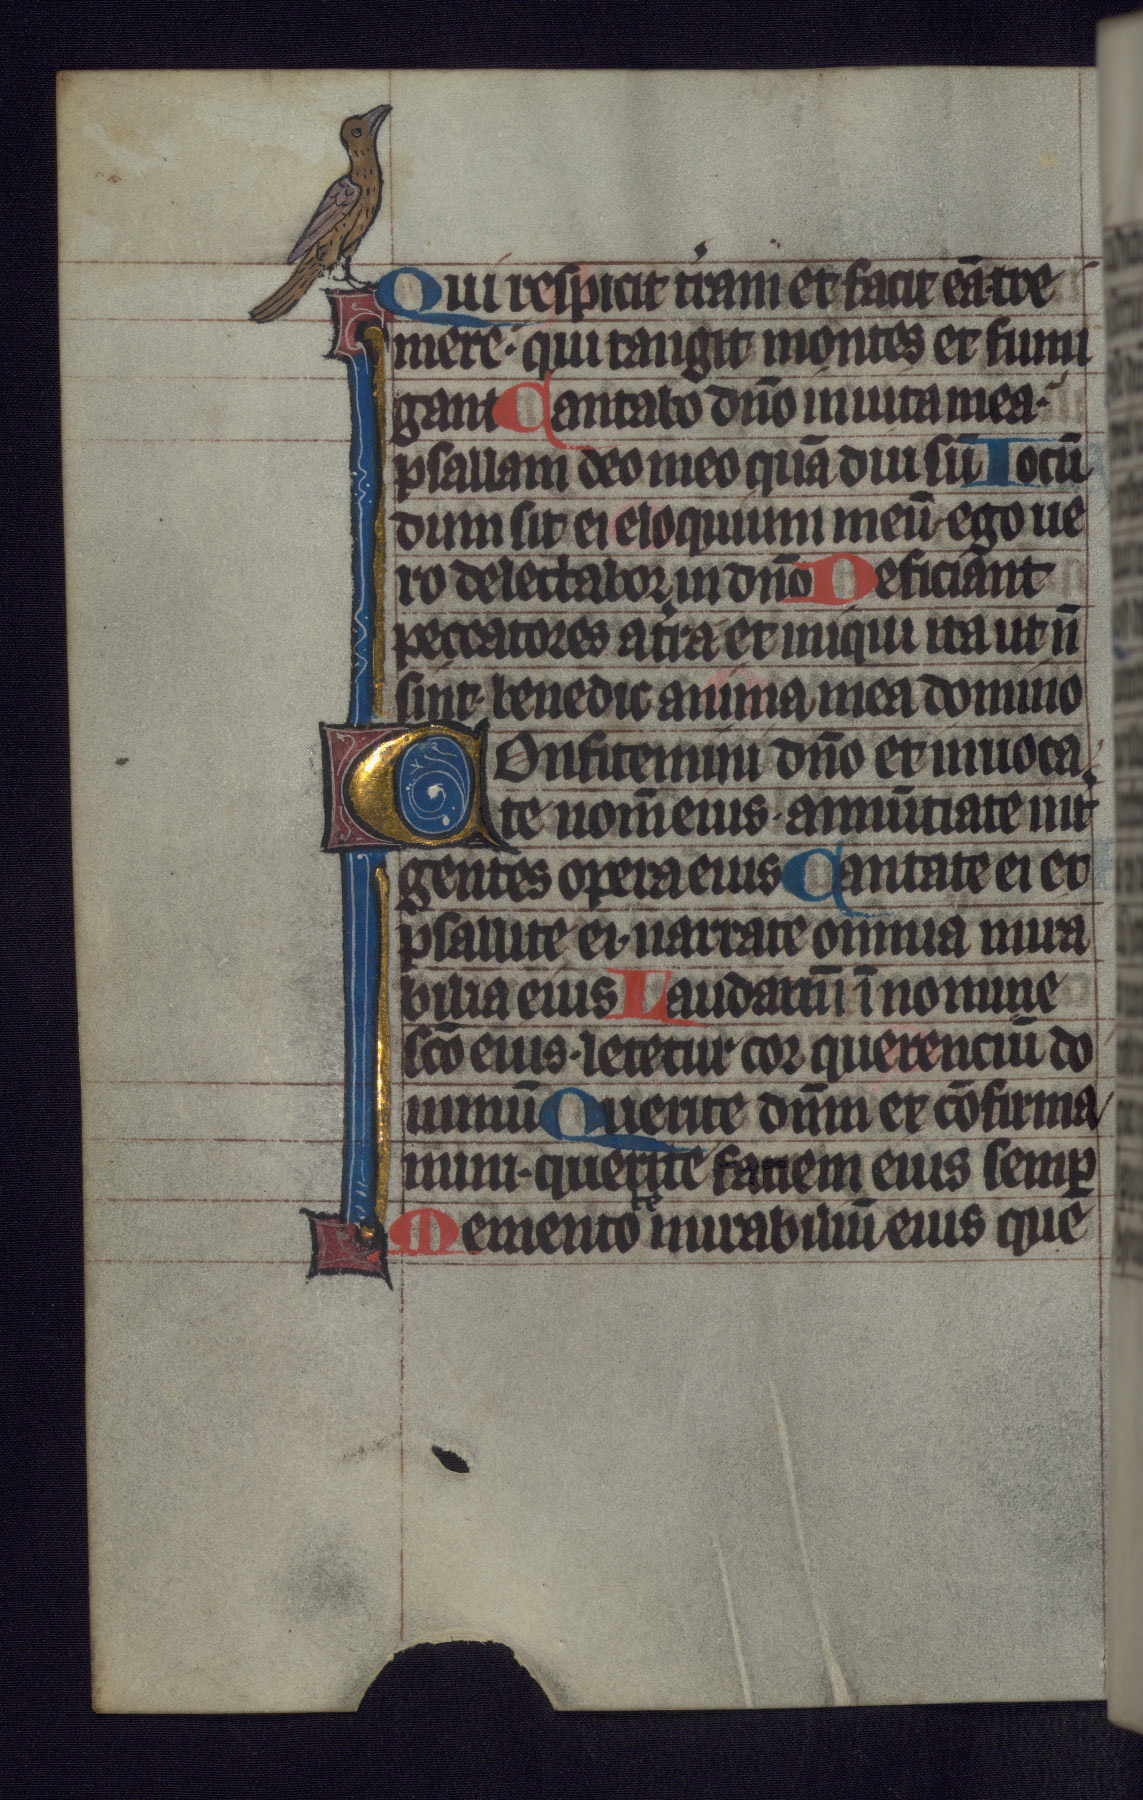 Qui respicit t'ram et facit eā tre
mere· qui tangit montes et fumi
gant Cantabo dn̄o in uita mea·
psallam deo meo quā diu sū Iocū
dum sit ei eloquium meū· ego ue
ro delectabor in dn̄o Deficiant
peccatores a t'ra et iniqui ita ut n̄
sint· benedic anima mea domino
Confitemini dn̄o et inuoca
te nom̄ eius· annūtiate int'
gentes opera eius Cantate ei et
psallite ei· narrate omnia mira
bilia eius Laudamī ī nomine
sc̄o eius· letetur cor querenciū do
minū Querite dn̄m et cōfirma
mini· querite faciem eius semp̲
Mementote mirabiliū eius que